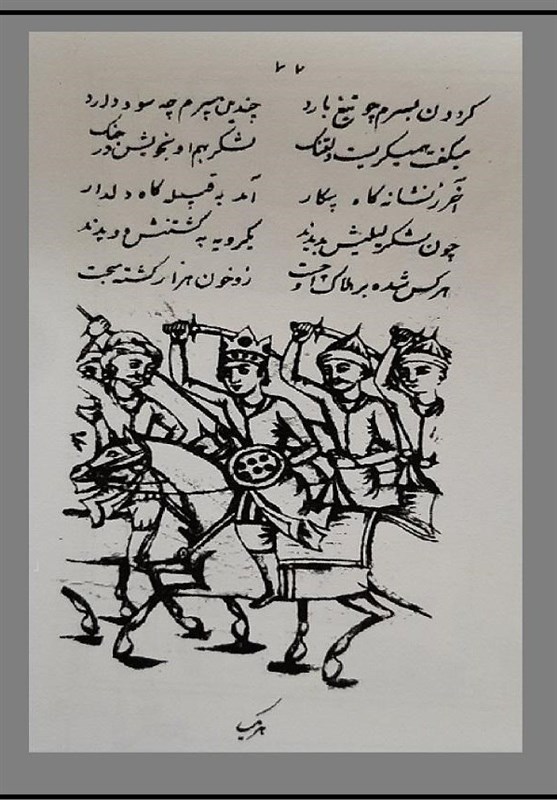 ۷۷
کردون بسرم چو تیغ بارد چندین سپرم چه سود دارد
میکفت همیکریست دلتنک لشکر بهم او بخویش در جنک
آخر ز نشانه کاه پیکار آمد به قبیله کاه دلدار
چون لشکر لیلیش بدیدند یکرویه به کشتنش دویدند
هر کس شده بر هلاک او چست زو خون هزار کشته میجست
هر یک